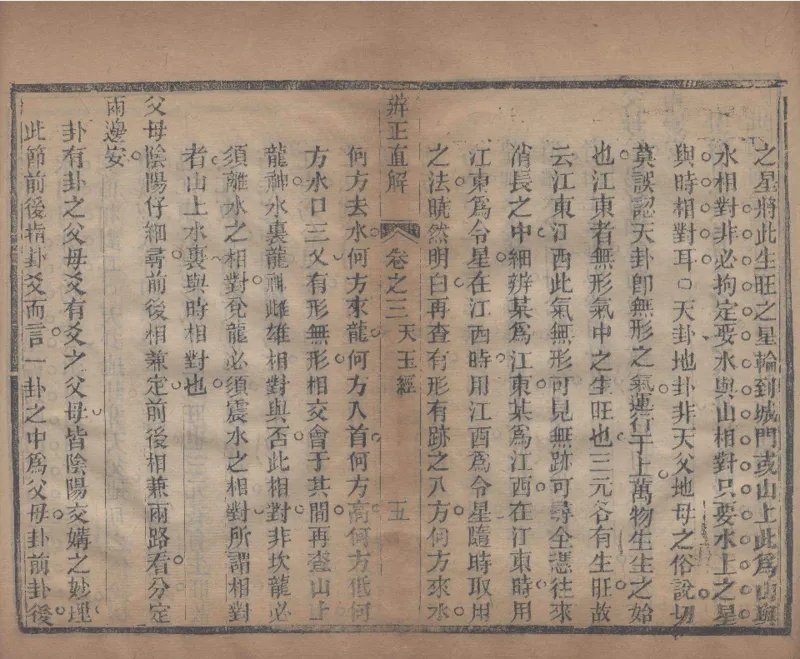 之星將此生旺之星輪到城門或山上此爲山與
水相對非必拘定要水與山相對只要水上之星
與時相對耳○天卦地卦非天父地母之俗說切
莫誤認天卦卽無形之氣運行于上萬物生生之始
也江東者無形氣中之生旺也三元各有生旺故
云江東江西此氣無形可見無跡可尋全憑往來
消長之中細辨某爲江東某爲江西在江東時用
江東爲令星在江西時用江西爲令星隨時取用
之法曉然明白再查有形有跡之八方何方來水
何方去水何方來龍何方入首何方高何方低何
方水口三叉有形無形相交會于其間再查山上
龍神水裏龍神雌雄相對與否此相對非坎龍必
須離水之相對兌龍必須震水之相對所謂相對
者山上水裏與時相對也
父母陰陽仔細尋前後相兼定前後相兼兩路看分定
兩邊安
卦有卦之父母爻有爻之父母皆陰陽交媾之妙理
此節前後指卦爻而言一卦之中爲父母卦前卦後
辨正直解
卷之三 天玉經
五